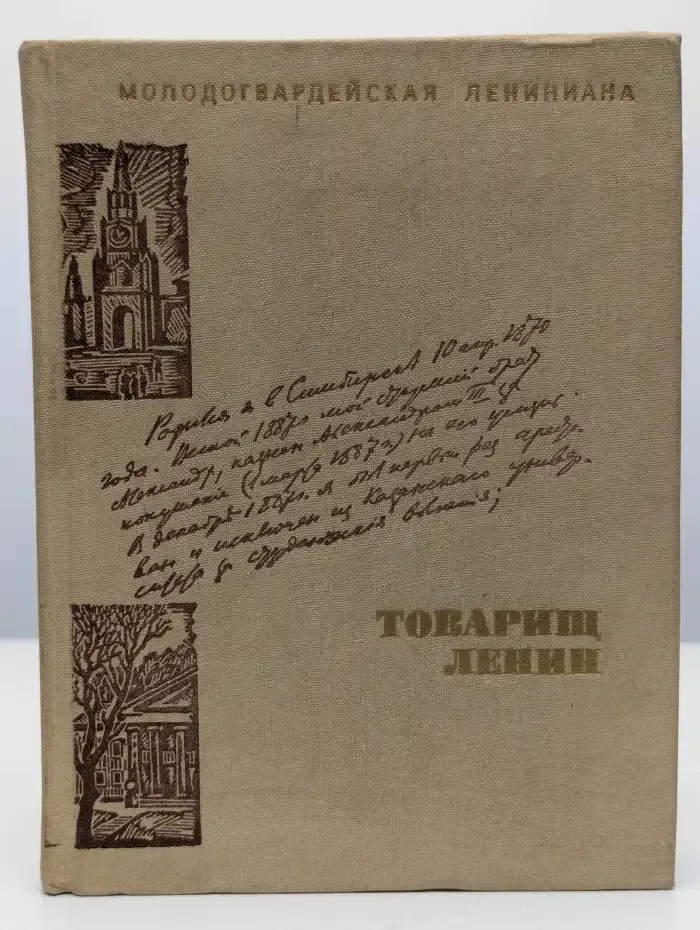 МОЛОДОГВАРДЕЙСКАЯ ЛЕНИНИАНА
Родился я в Симбирске 10 апр. 1870
года. Весной 1887 г. мой старший брат
Александр, казнен Александром III за
покушение (1 марта 1887 г.) на его жизнь.
В декабре 1887 г. я был первый раз аресто-
ван и исключен из Казанского универ-
ситета за студенческие волнения;
ТОВАРИЩ
ЛЕНИН